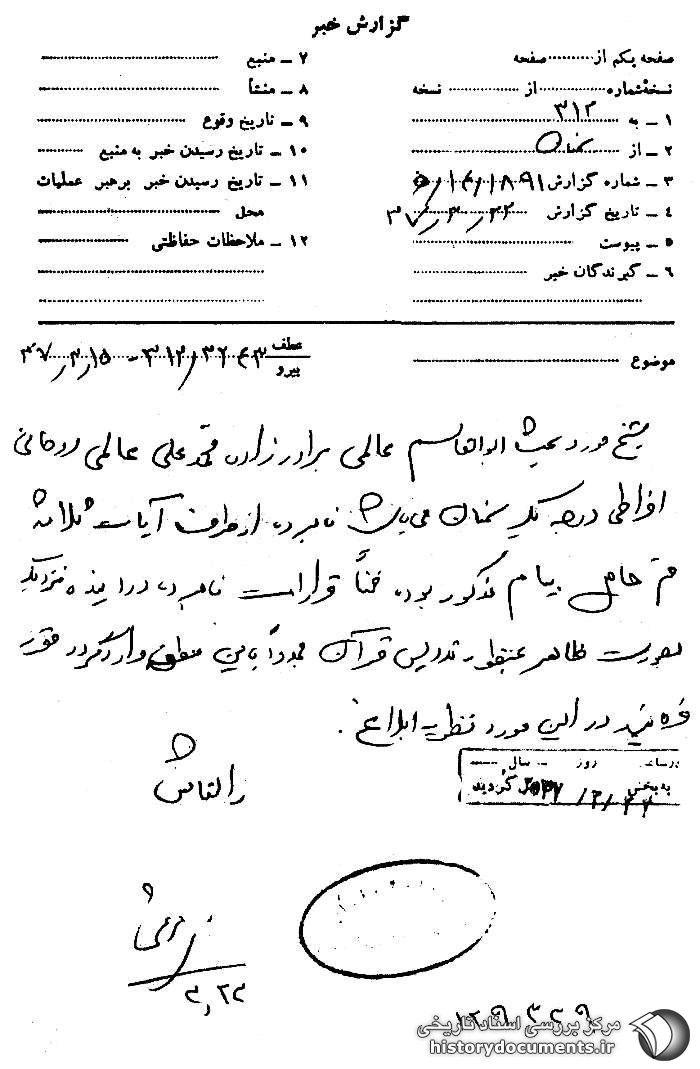 گزارش خبر
صفحه یکم از ............ صفحه
نسخه شماره ............ از ............ نسخه
۱ ـ به ۳۱۲
۲ ـ از سمنان
۳ ـ شماره گزارش
۴ ـ تاریخ گزارش
۵ ـ پیوست
۶ ـ گیرندگان خبر
۷ ـ منبع
۸ ـ منشأ
۹ ـ تاریخ وقوع
۱۰ ـ تاریخ رسیدن خبر به منبع
۱۱ ـ تاریخ رسیدن خبر برهبر عملیات
محل
۱۲ ـ ملاحظات حفاظتی
موضوع
عطف
پیرو
شیخ مورد بحث ابوالقاسم عالمی برادرزاده محمدعلی عالمی روحانی
افراطی درجه یک سمنان می‌باشد نامبرده از طرف آیات ثلاثه
قم حامل پیام مذکور بوده ضمناً قرار است نامبرده در آینده نزدیک
بصورت ظاهر بمنظور تدریس قرآن مجدداً باین منطقه وارد گردد مقرر
فرمایند در این مورد نظریه ابلاغ.
در ساعت روز سال
به بخش گردید
مرکز بررسی اسناد تاریخی
historydocuments.ir